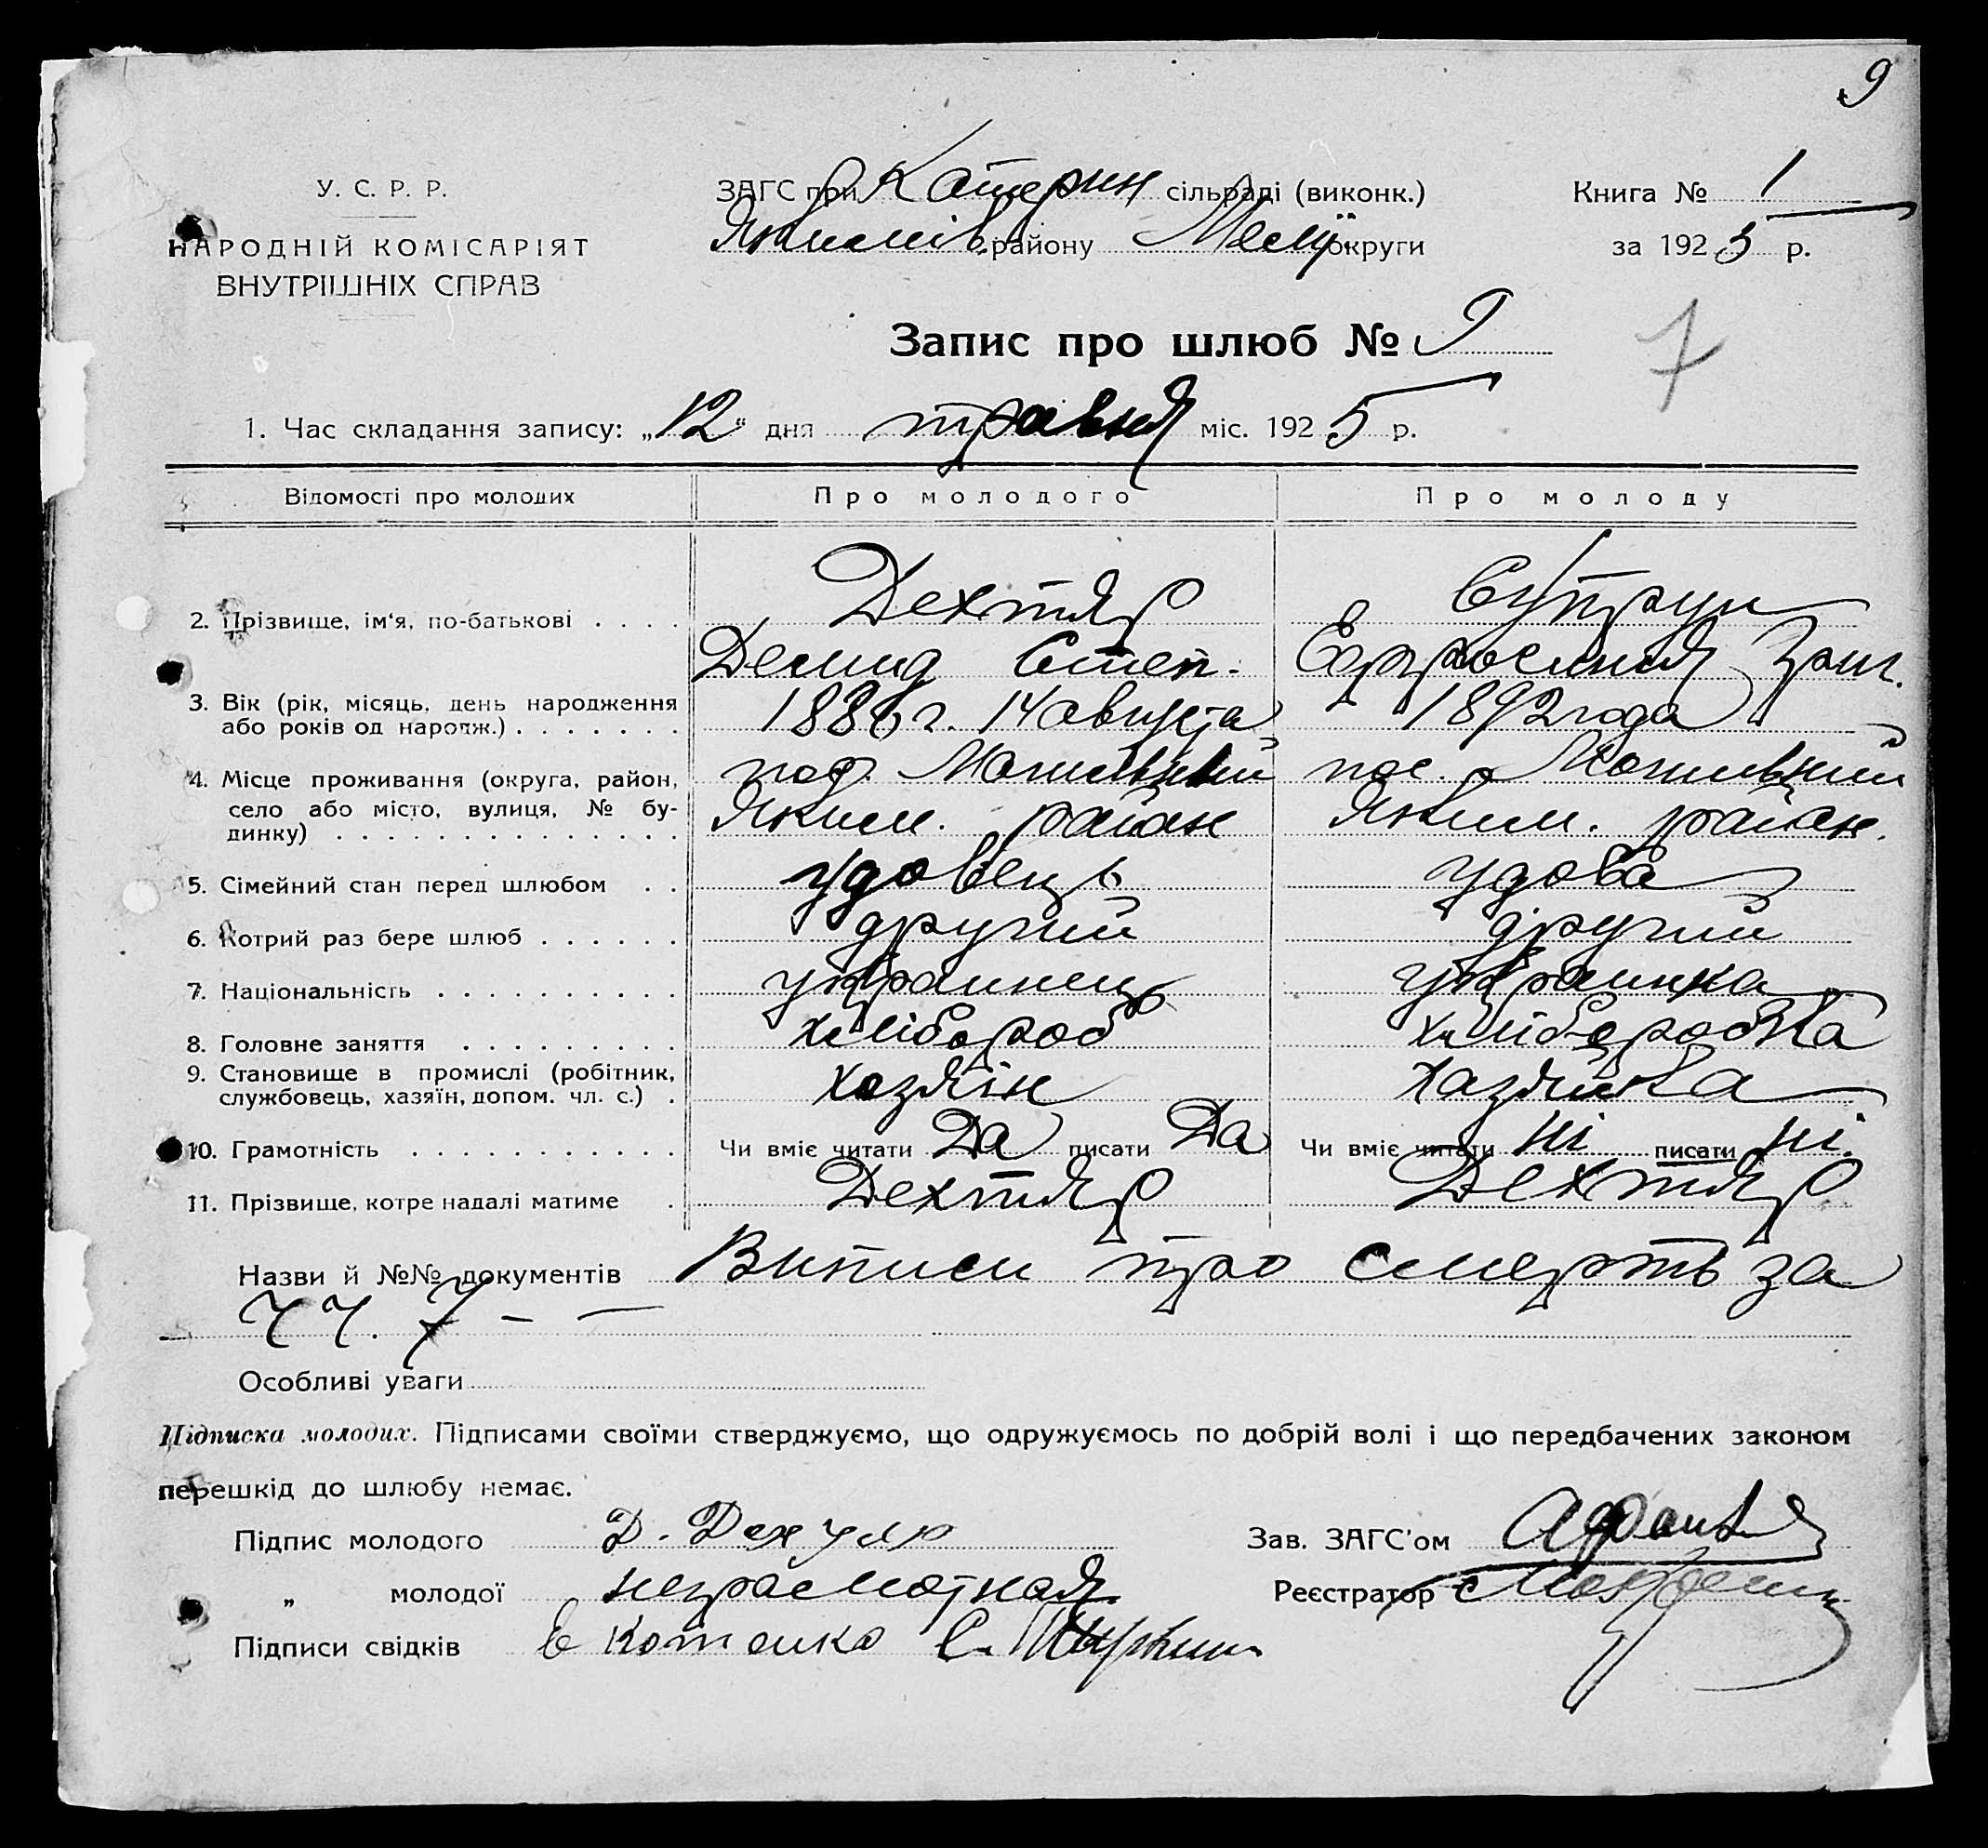 9
У. С. Р. Р.
НАРОДНІЙ КОМІСАРІЯТ
ВНУТРІШНІХ СПРАВ
ЗАГС при Катерин сільраді (виконк.)
Якимів. району Меліт округи
Книга № 1
за 1925 р.
Запис про шлюб № 9
7
1. Час складання запису: „12“ дня травня міс. 1925 р.
Відомості про молодих
Про молодого
Про молоду
2. Прізвище, ім'я, по-батькові . . . .
Дехтяр
Демид Степ.
Супрун
Ефросиния Григ.
3. Вік (рік, місяць, день народження або років од народж.) . . . . . . .
1886 г. 14 августа
1892 года
4. Місце проживання (округа, район, село або місто, вулиця, № будинку) . . . . . . . . . . . . . .
пос. Могилький
Яким. район
пос. Могилький
Яким. район.
5. Сімейний стан перед шлюбом . .
удовець
удова
6. Котрий раз бере шлюб . . . . . .
другий
другий
7. Національність . . . . . . . . . .
украинець
украинка
8. Головне заняття . . . . . . . . .
хлібороб
хліборобка
9. Становище в промислі (робітник, службовець, хазяїн, допом. чл. с.) .
хозяїн
хазяйка
10. Грамотність . . . . . . . . . . . .
Чи вміє читати Да писати Да
Чи вміє читати ні писати ні.
11. Прізвище, котре надалі матиме .
Дехтяр
Дехтяр
Назви й №№ документів Виписи про смерть за
44. 7 – –
Особливі уваги
Підписка молодих. Підписами своїми стверджуємо, що одружуємось по добрій волі і що передбачених законом
перешкід до шлюбу немає.
Підпис молодого Д. Дехтяр
Зав. ЗАГС'ом
„ молодої неграмотная
Реєстратор
Підписи свідків Котенко С.